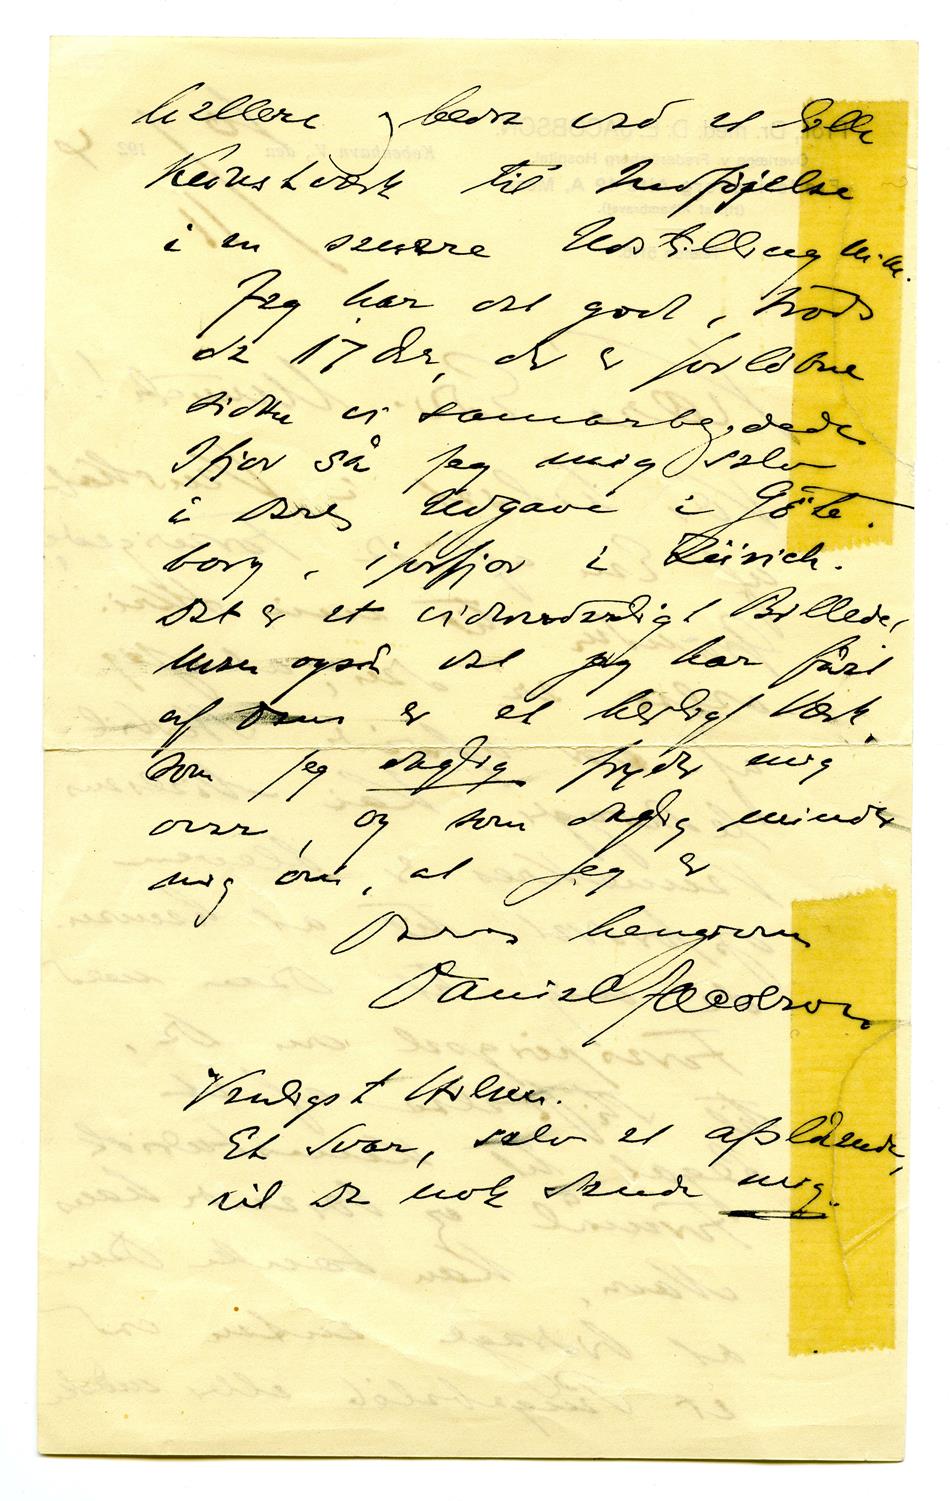 hellere, bedre ved et Ville
Kunstværk til Indføjelse
i en senere Udstilling m.m.
Jeg har det godt, trods
de 17 År, der er forløbne
siden vi samarbejdede.
Ifjor så jeg mig selv
i Deres Udgave i Göte-
borg, i forfjor i Zürich.
Det er et vidunderligt Billede,
men også det jeg har fået
af Dem er et herligt Værk,
som jeg daglig fryder mig
over, og som daglig minder
mig om, at jeg er
Deres hengivne
Daniel Jacobson
Venligst Hilsen.
Et Svar, selv et afslående,
vil De nok sende mig.